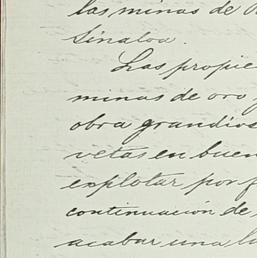 las minas de
Sinaloa.
Las propie
minas de oro y
obra grandios
vetas en buen
explotar por f
continuación de
acabar una la